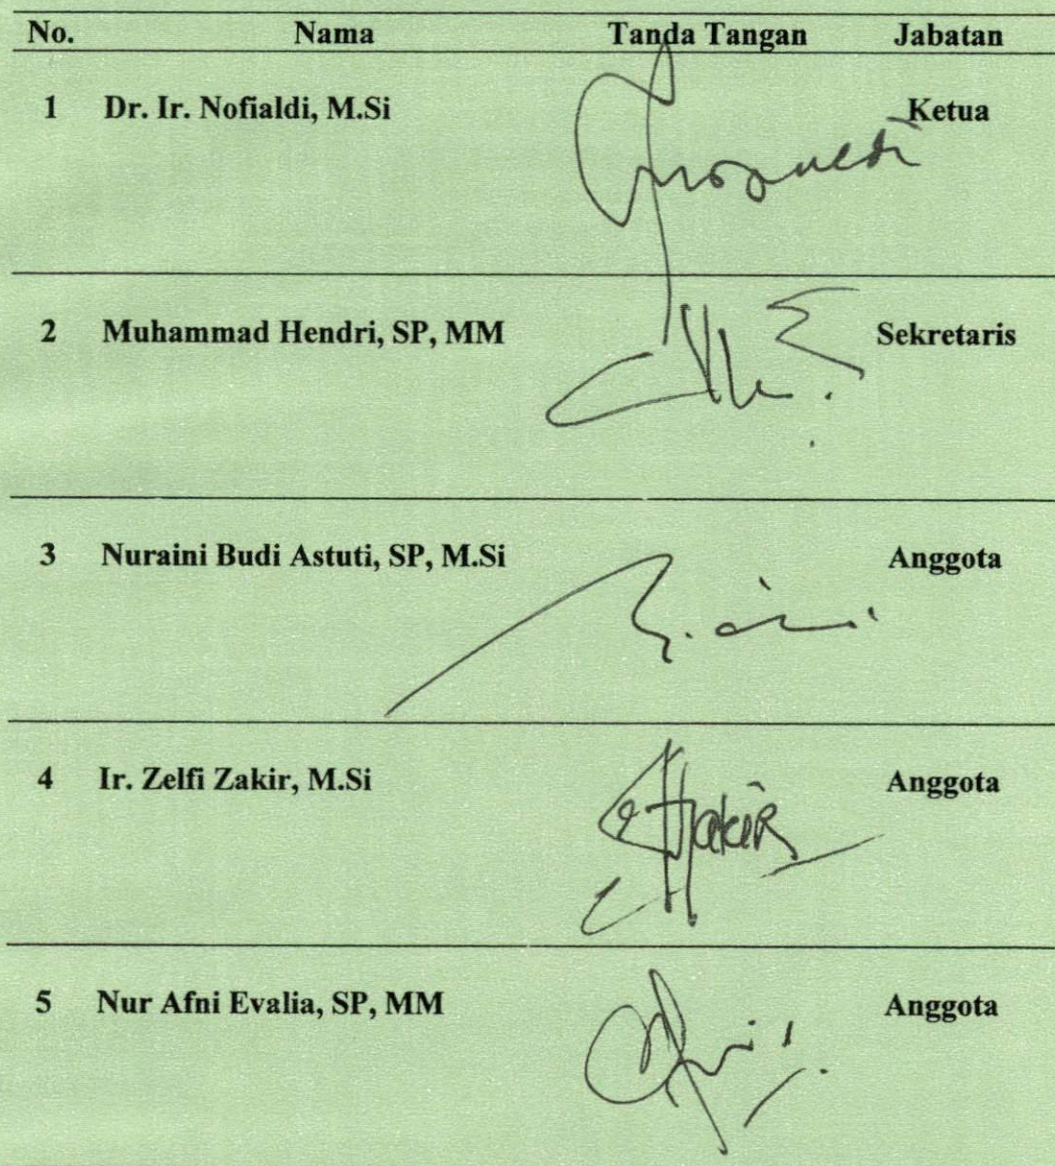 No. Nama Tanda Tangan Jabatan
1 Dr. Ir. Nofialdi, M.Si Ketua
2 Muhammad Hendri, SP, MM Sekretaris
3 Nuraini Budi Astuti, SP, M.Si Anggota
4 Ir. Zelfi Zakir, M.Si Anggota
5 Nur Afni Evalia, SP, MM Anggota